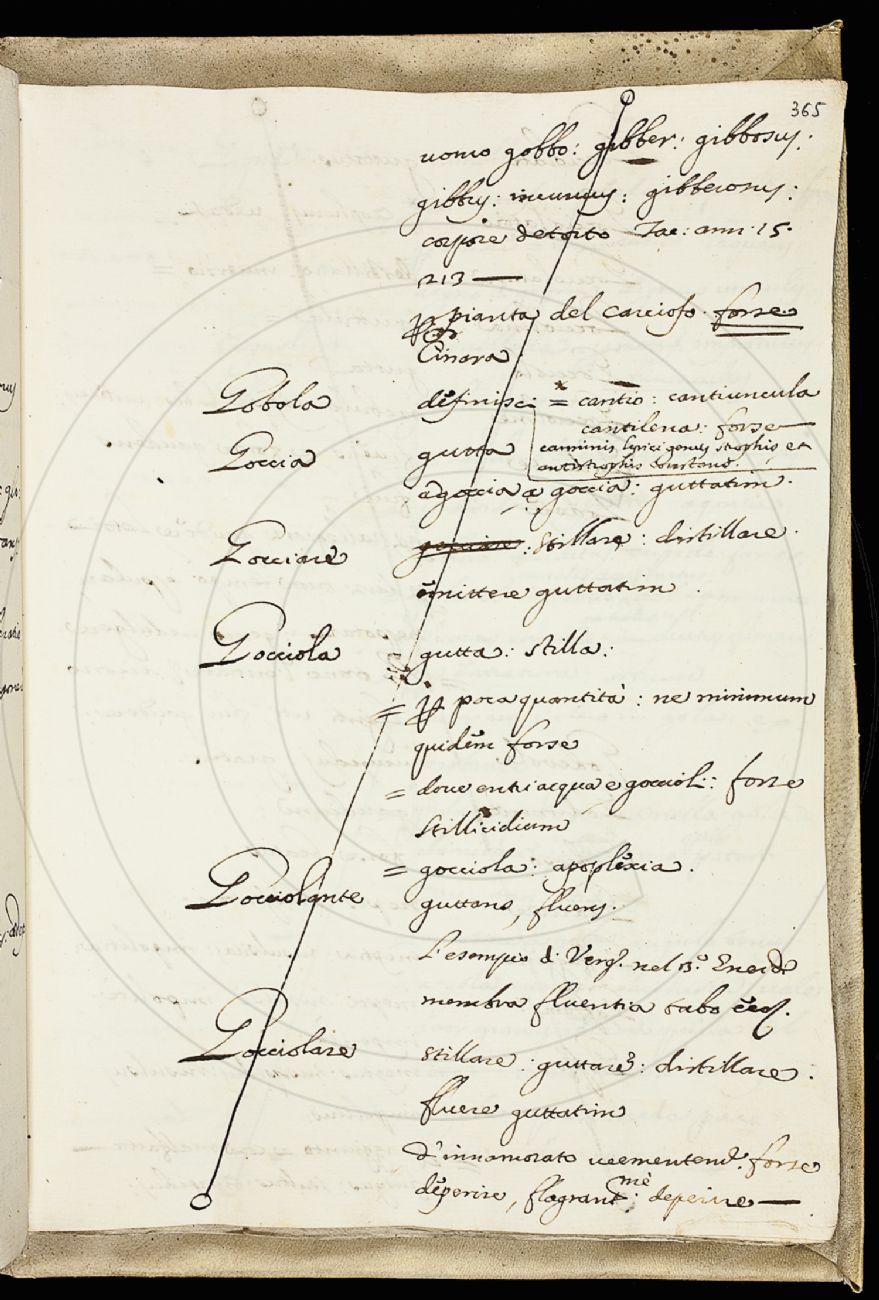 365
uomo gobbo: gibber: gibbosus:
gibbus: incurvus: gibberosus:
corpore detorto Tac: ann: 15.
213 —
pianta del Carciofo. forse
Cinara
Gobola definisc: = cantio: cantiuncula
cantilena: forse
carminis lyrici genus strophis et
antistrophis constans.
Goccia gutta
a goccia a goccia: guttatim.
Gocciare gocciare: stillare: distillare.
emittere guttatim.
Gocciola gutta: stilla:
= poca quantità: ne minimum
quidem forse
= dove entri acqua e goccioli: forse
stillicidium
= gocciola: apoplexia.
Gocciolante guttans, fluens.
L'esempio di Verg. nel 3.º Eneid.
membra fluentia tabo
Gocciolare stillare: guttare: distillare.
fluere guttatim
d'innamorato veementem.te forse
deperire, flagrant.me deperire —